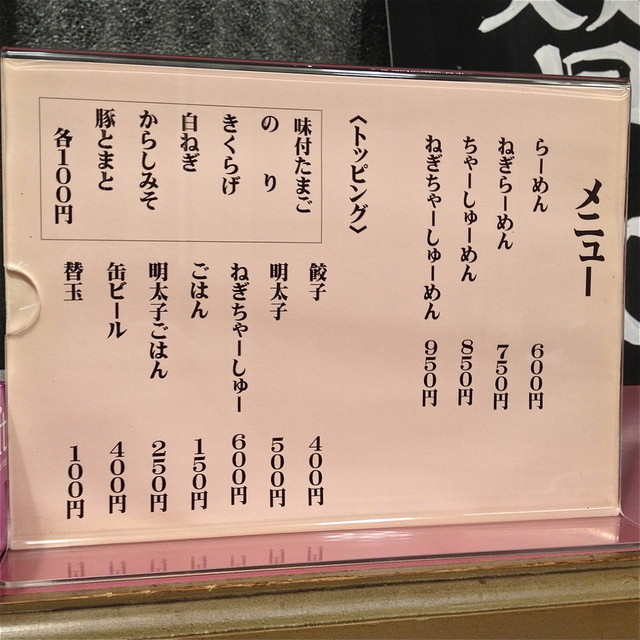 メニュー
らーめん 600円
ねぎらーめん 750円
ちゃーしゅーめん 850円
ねぎちゃーしゅーめん 950円
〈トッピング〉
味付たまご
のり
きくらげ
白ねぎ
からしみそ
豚とまと
各100円
餃子 400円
明太子 500円
ねぎちゃーしゅー 600円
ごはん 150円
明太子ごはん 250円
缶ビール 400円
替玉 100円